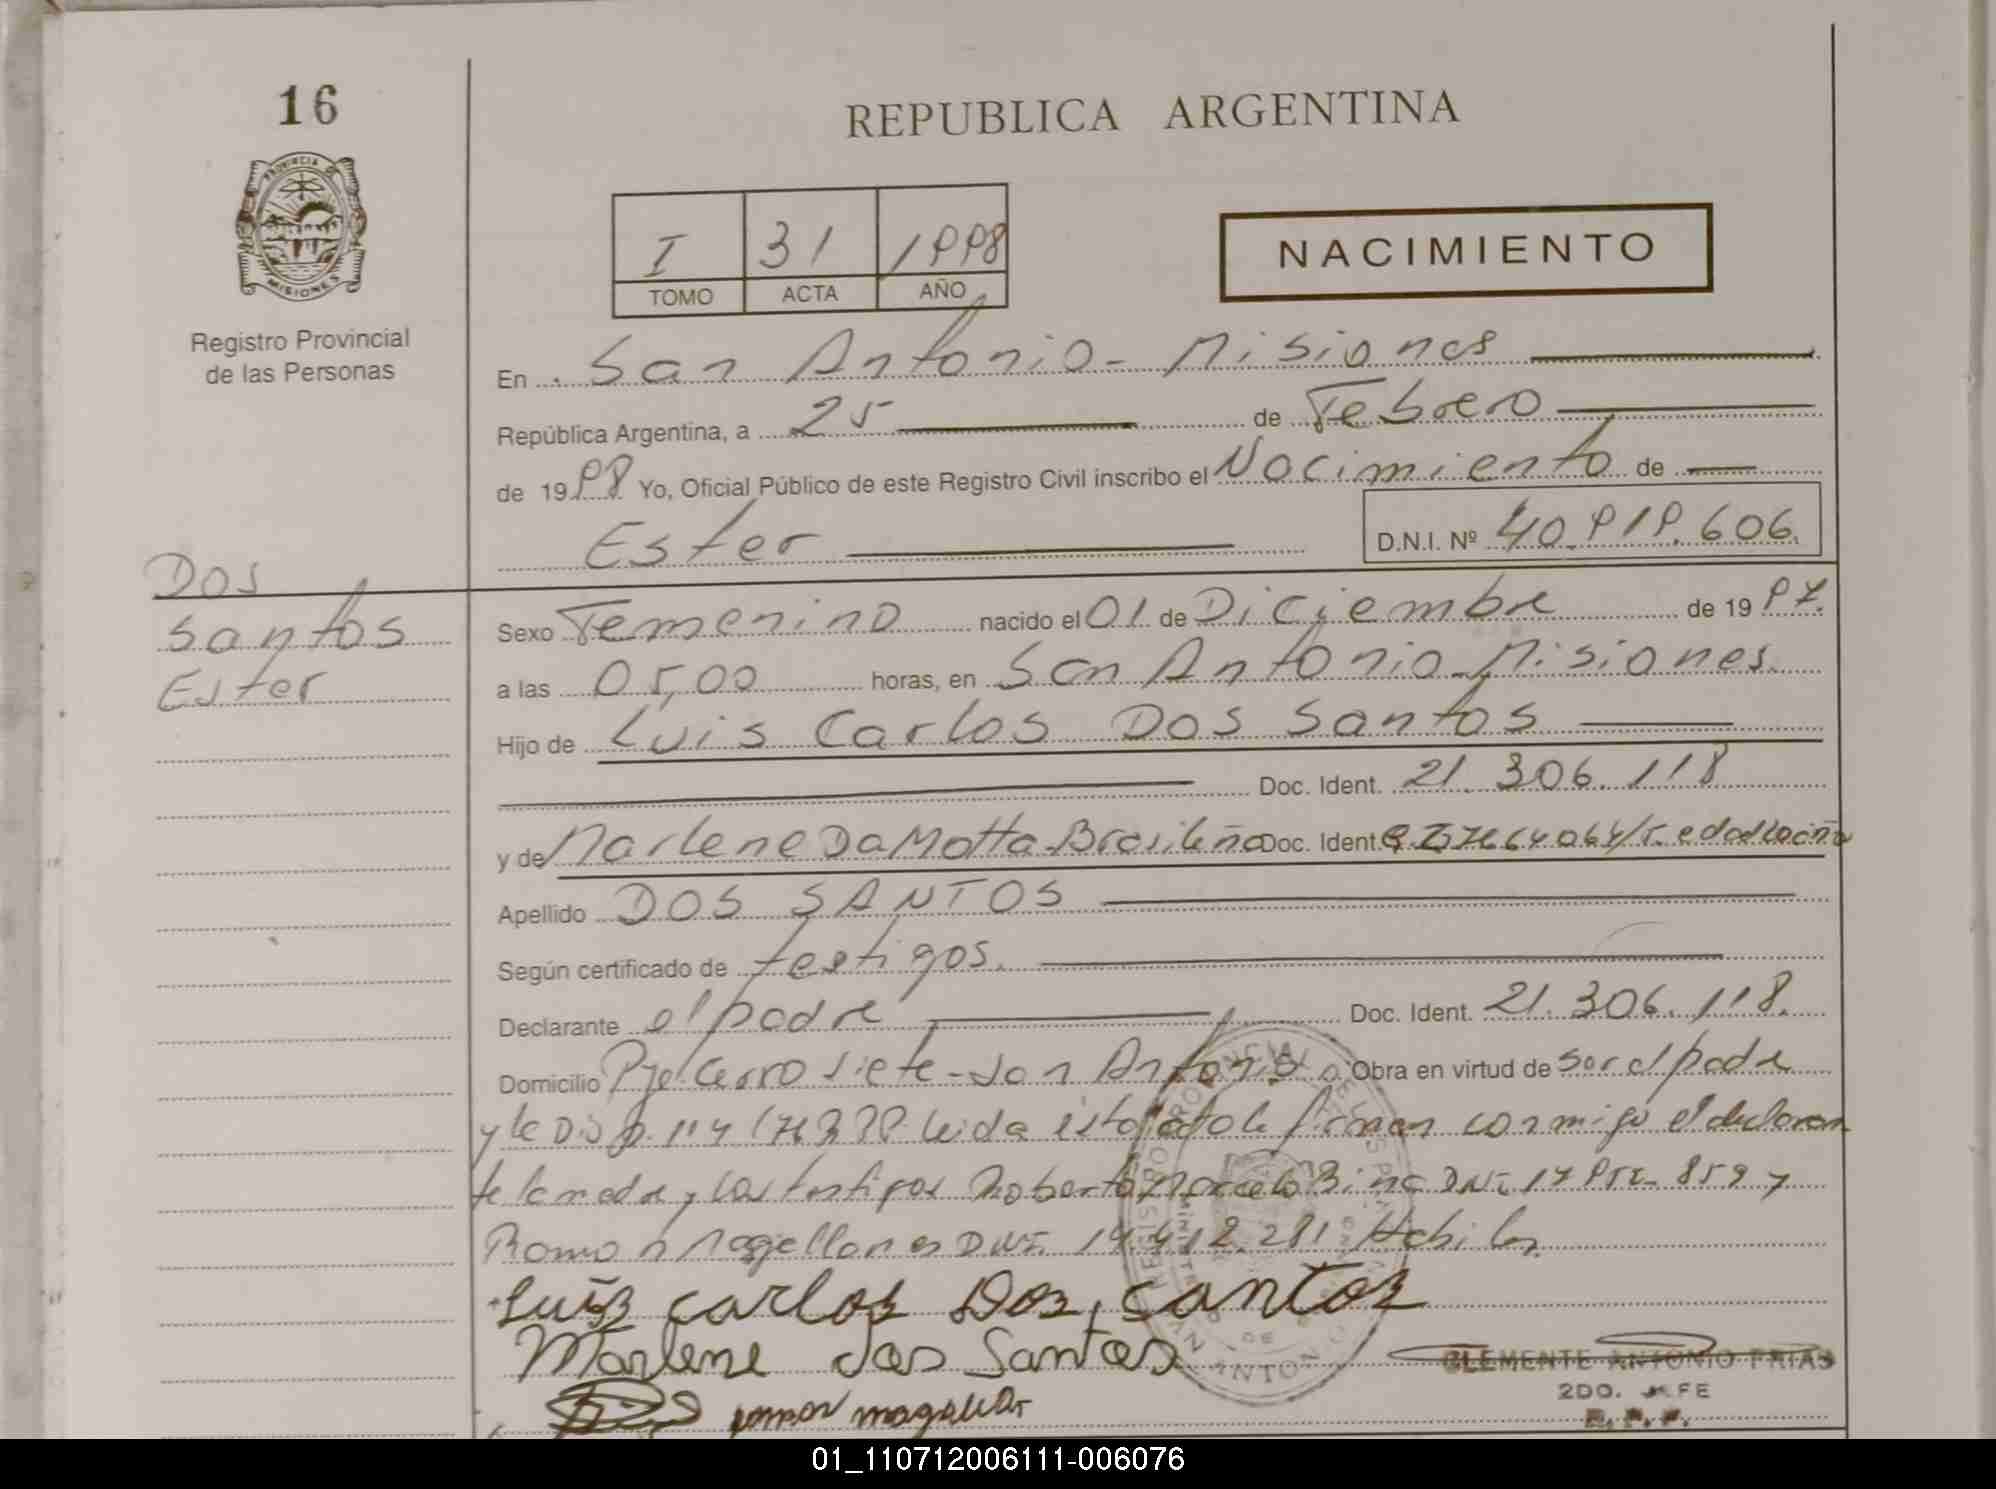 16
REPUBLICA ARGENTINA
PROVINCIA DE
MISIONES
Registro Provincial
de las Personas
I 31 1998
TOMO ACTA AÑO
NACIMIENTO
En San Antonio - Misiones
República Argentina, a 25 de Febrero
de 1998 Yo, Oficial Público de este Registro Civil inscribo el Nacimiento de
Ester D.N.I. Nº 40.919.606.
Dos
Santos
Ester
Sexo Femenino nacido el 01 de Diciembre de 1997.
a las 05,00 horas, en San Antonio - Misiones.
Hijo de Luis Carlos Dos Santos
Doc. Ident. 21.306.118
y de Marlene Da Motta - Brasileña Doc. Ident.
Apellido DOS SANTOS
Según certificado de testigos.
Declarante el padre Doc. Ident. 21.306.118.
Domicilio Pje Cerro Siete - San Antonio Obra en virtud de ser el padre
y la Disp. leida esta acta la firman conmigo el declaran
te la madre y los testigos Roberto Marcelo DNI 859 y
Ramon Magallanes DNI. 14.412.281 Habiles.
Luiz carlos Dos Santos
Marlene dos Santos
ramon magallan
CLEMENTE ANTONIO FRIAS
2DO. JEFE
R. P. P.
01_110712006111-006076